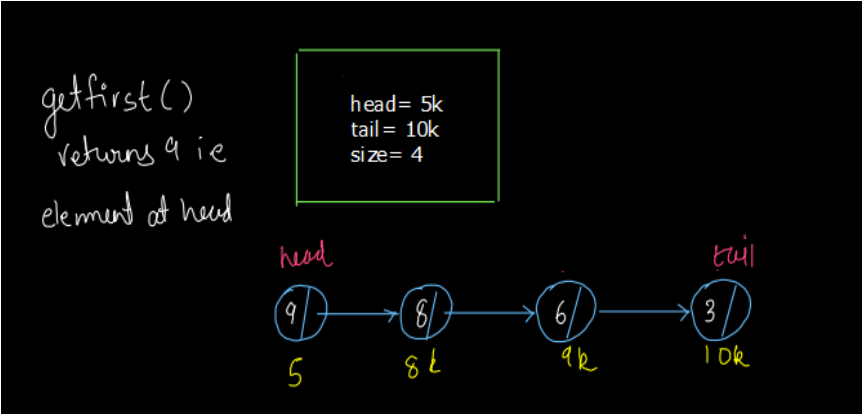 getfirst()
returns 9 ie
element at head
head= 5k
tail= 10k
size= 4
head tail
9 8 6 3
5 8k 9k 10k